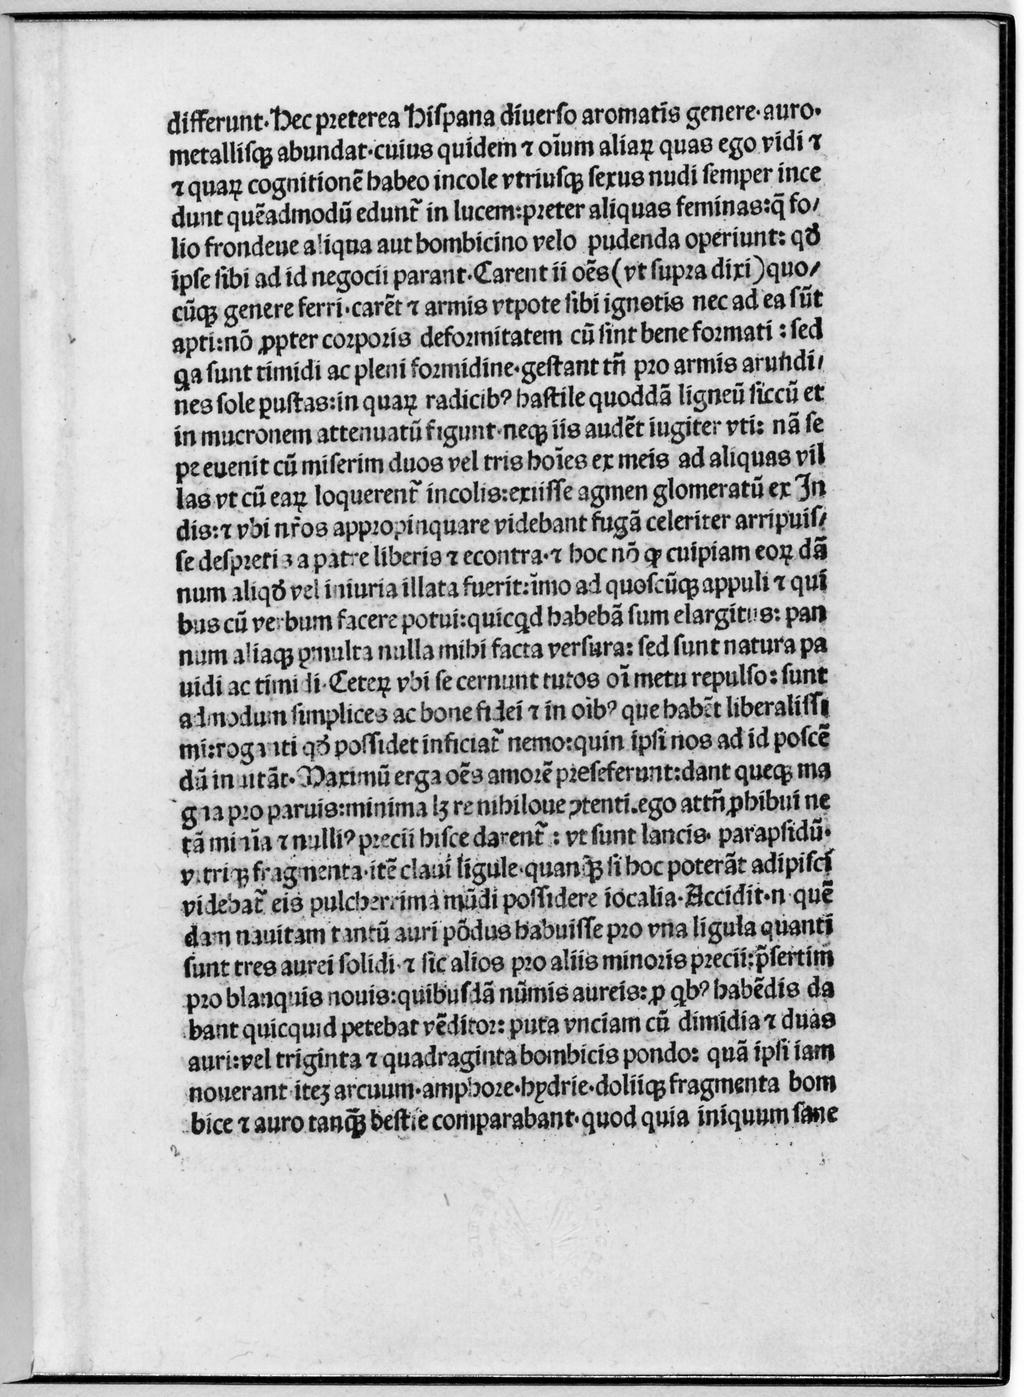 differunt. Hec preterea Hispana diuerso aromatis genere. auro.
metallisqꝫ abundat. cuius quidem ⁊ oīum aliaꝝ quas ego vidi ⁊
⁊ quaꝝ cognitionē habeo incole vtriusqꝫ sexus nudi semper ince
dunt quēadmodū edunt̄ in lucem: preter aliquas feminas: q̄ fo/
lio frondeue aliqua aut bombicino velo pudenda operiunt: qđ
ipse sibi ad id negocii parant. Carent ii oēs (vt supra dixi) quo/
cūqꝫ genere ferri. carēt ⁊ armis vtpote sibi ignotis nec ad ea sūt
apti: nō ꝓpter corporis deformitatem cū sint bene formati: sed
qa sunt timidi ac pleni formidine. gestant tn̄ pro armis arundi/
nes sole pustas: in quaꝝ radicibꝰ hastile quoddā ligneū siccū et
in mucronem attenuatū figunt. neqꝫ iis audēt iugiter vti: nā se
pe euenit cū miserim duos vel tris hoīes ex meis ad aliquas vil
las vt cū eaꝝ loquerent̄ incolis: exiisse agmen glomeratū ex In
dis: ⁊ vbi nr̄os appropinquare videbant fugā celeriter arripuis/
se despretis a patre liberis ⁊ econtra. ⁊ hoc nō ꝙ cuipiam eoꝝ dā
num aliqđ vel iniuria illata fuerit: īmo ad quoscūqꝫ appuli ⁊ qui
bus cū verbum facere potui: quicqd habebā sum elargitus: pan
num aliaqꝫ ꝑmulta nulla mihi facta versura: sed sunt natura pa
uidi ac timidi. Ceteꝝ vbi se cernunt tutos oī metu repulso: sunt
admodum simplices ac bone fidei ⁊ in oibꝰ que habēt liberalissi
mi: roganti qđ possidet inficiat̄ nemo: quin ipsi nos ad id poscē
dū inuitāt. Maximū erga oēs amorē preseferunt: dant queqꝫ ma
gna pro paruis: minima lꝫ re nihiloue ꝯtenti. ego attn̄ ꝓhibui ne
tā minīa ⁊ nulliꝰ precii hisce darent̄: vt sunt lancis. parapsidū.
vitriqꝫ fragmenta. itē claui ligule. quanqꝫ si hoc poterāt adipisci
videbat̄ eis pulcherrima mūdi possidere iocalia. Accidit. n. quē
dam nauitam tantū auri pōdus habuisse pro vna ligula quanti
sunt tres aurei solidi. ⁊ sic alios pro aliis minoris precii: p̄sertim
pro blanquis nouis: quibusdā nūmis aureis: ꝓ qbꝰ habēdis da
bant quicquid petebat vēditor: puta vnciam cū dimidia ⁊ duas
auri: vel triginta ⁊ quadraginta bombicis pondo: quā ipsi iam
nouerant. iteꝫ arcuum. amphore. hydrie. doliiqꝫ fragmenta bom
bice ⁊ auro tanqꝫ bestie comparabant. quod quia iniquum sane